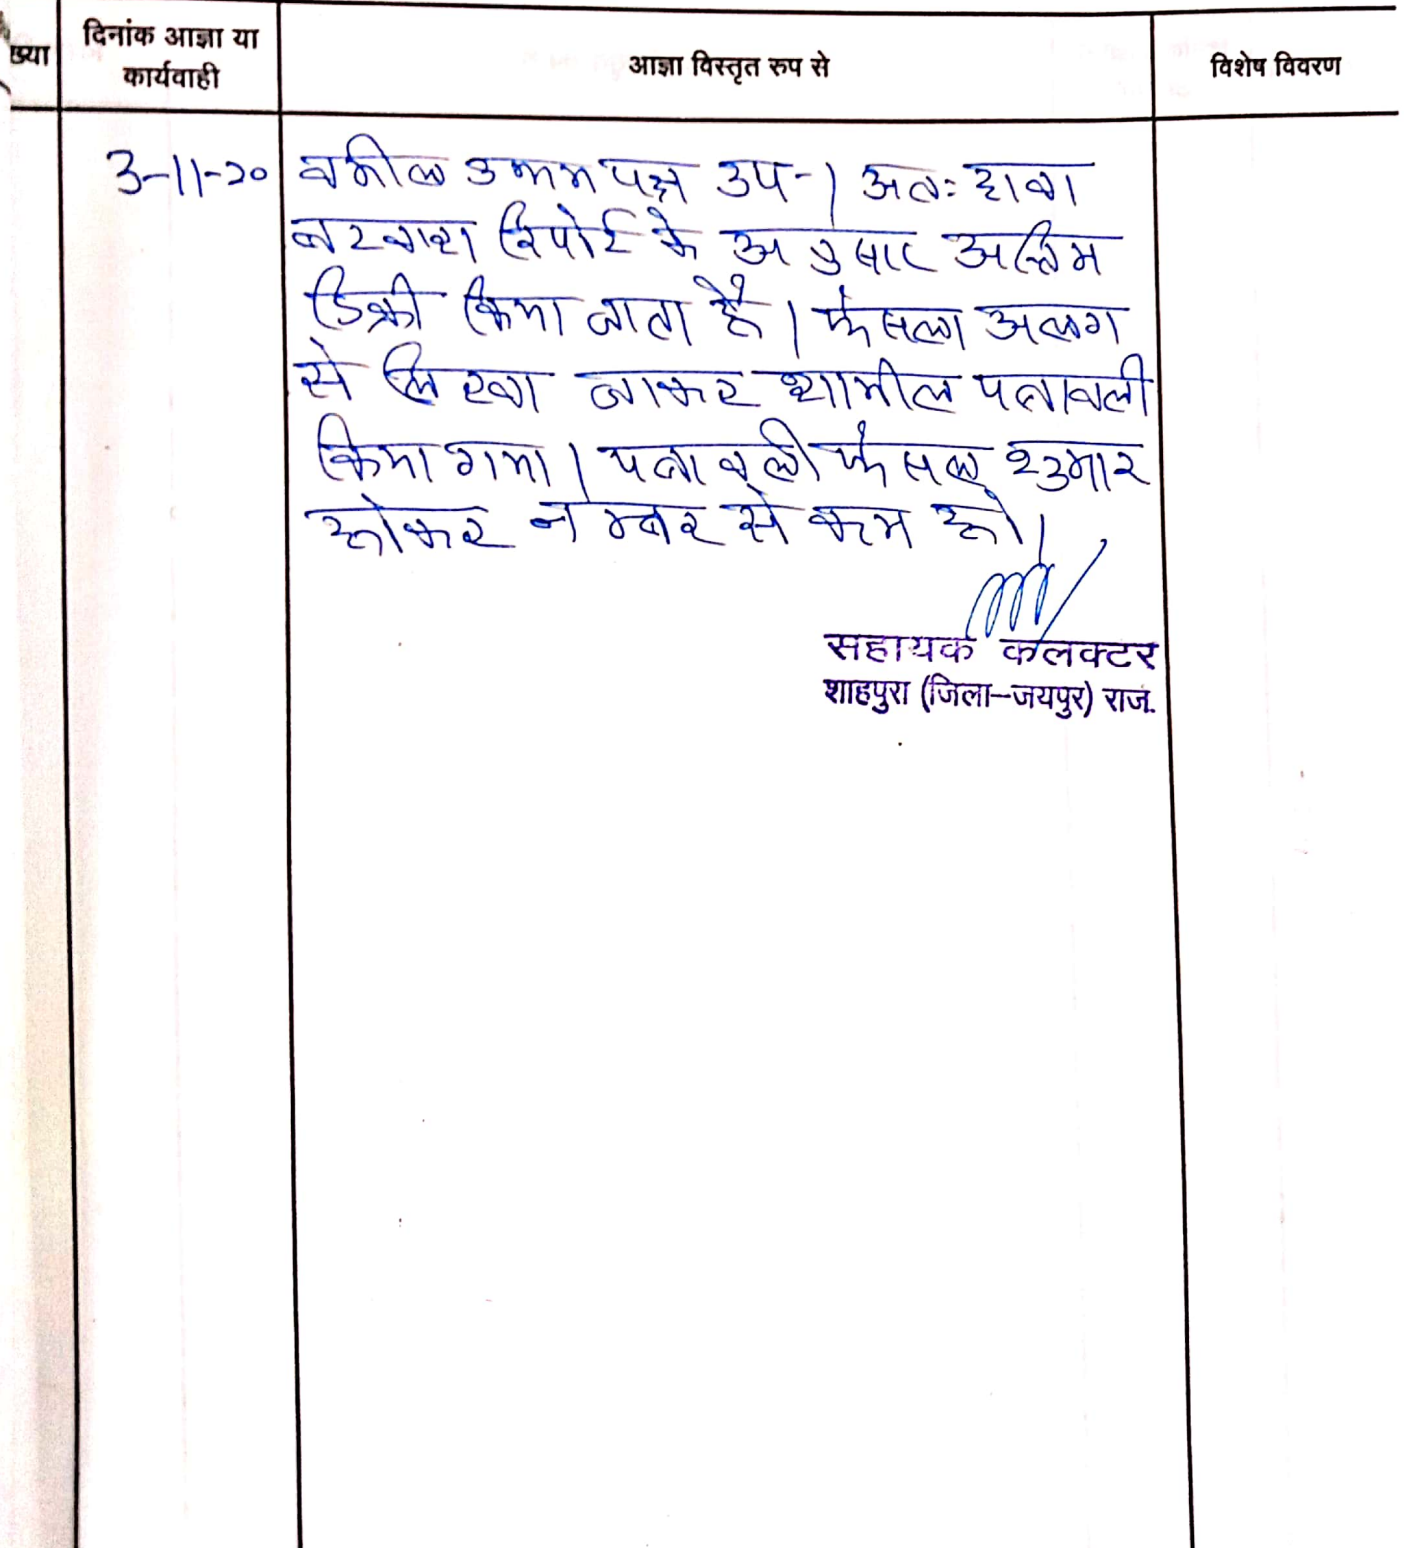 ख्या
दिनांक आज्ञा या
कार्यवाही
आज्ञा विस्तृत रुप से
विशेष विवरण
3-11-20
वकील उभय पक्ष उप-। अतः दावा
कुर्रेजात रिपोर्ट के अनुसार अन्तिम
डिक्री किया जाता है। फैसला अलग
से लिखा जाकर शामील पत्रावली
किया गया। पत्रावली फैसल शुमार
होकर नम्बर से कम हो।
सहायक कलक्टर
शाहपुरा (जिला-जयपुर) राज.